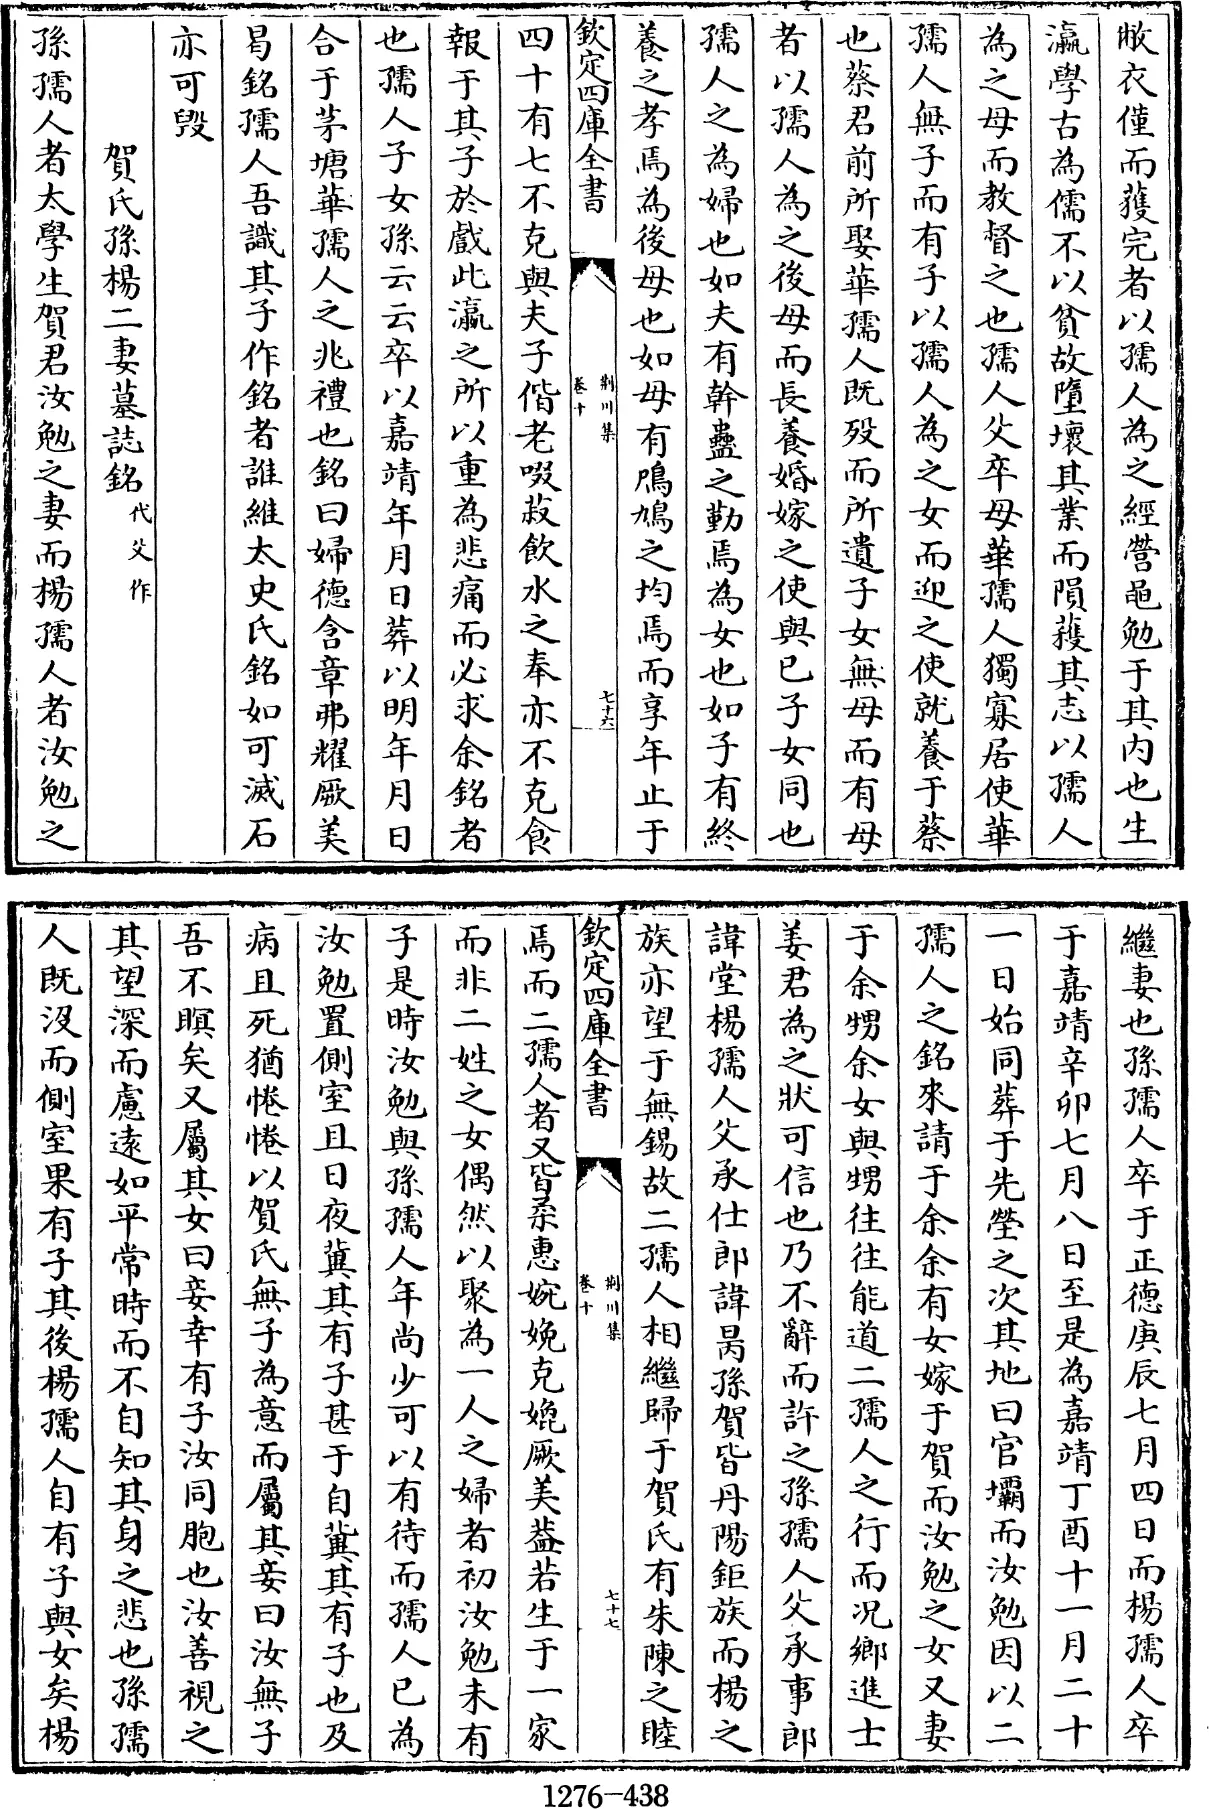 敝衣僅而獲完者以孺人為之經營黽勉于其内也生
瀛學古為儒不以貧故墮壞其業而隕穫其志以孺人
為之母而教督之也孺人父卒母華孺人獨寡居使華
孺人無子而有子以孺人為之女而迎之使就養于蔡
也蔡君前所娶華孺人既歿而所遺子女無母而有母
者以孺人為之後母而長養婚嫁之使與已子女同也
孺人之為婦也如夫有幹蠱之勤焉為女也如子有終
養之孝焉為後母也如母有鳲鳩之均焉而享年止于
欽定四庫全書
荆川集
卷十
七十六
四十有七不克與夫子偕老啜菽飲水之奉亦不克食
報于其子於戲此瀛之所以重為悲痛而必求余銘者
也孺人子女孫云云卒以嘉靖年月日葬以明年月日
合于茅塘華孺人之兆禮也銘曰婦德含章弗耀厥美
曷銘孺人吾識其子作銘者誰維太史氏銘如可滅石
亦可毁
賀氏孫楊二妻墓誌銘代父作
孫孺人者太學生賀君汝勉之妻而楊孺人者汝勉之
繼妻也孫孺人卒于正德庚辰七月四日而楊孺人卒
于嘉靖辛卯七月八日至是為嘉靖丁酉十一月二十
一日始同葬于先塋之次其地曰官壩而汝勉因以二
孺人之銘來請于余余有女嫁于賀而汝勉之女又妻
于余甥余女與甥往往能道二孺人之行而况鄉進士
姜君為之狀可信也乃不辭而許之孫孺人父承事郎
諱堂楊孺人父承仕郎諱昺孫賀皆丹陽鉅族而楊之
族亦望于無錫故二孺人相繼歸于賀氏有朱陳之睦
欽定四庫全書
荆川集
卷十
七十七
焉而二孺人者又皆柔惠婉娩克媲厥美蓋若生于一家
而非二姓之女偶然以聚為一人之婦者初汝勉未有
子是時汝勉與孫孺人年尚少可以有待而孺人已為
汝勉置側室且日夜冀其有子甚于自冀其有子也及
病且死猶惓惓以賀氏無子為意而屬其妾曰汝無子
吾不瞑矣又屬其女曰妾幸有子汝同胞也汝善視之
其望深而慮遠如平常時而不自知其身之悲也孫孺
人既沒而側室果有子其後楊孺人自有子與女矣楊
1276-438